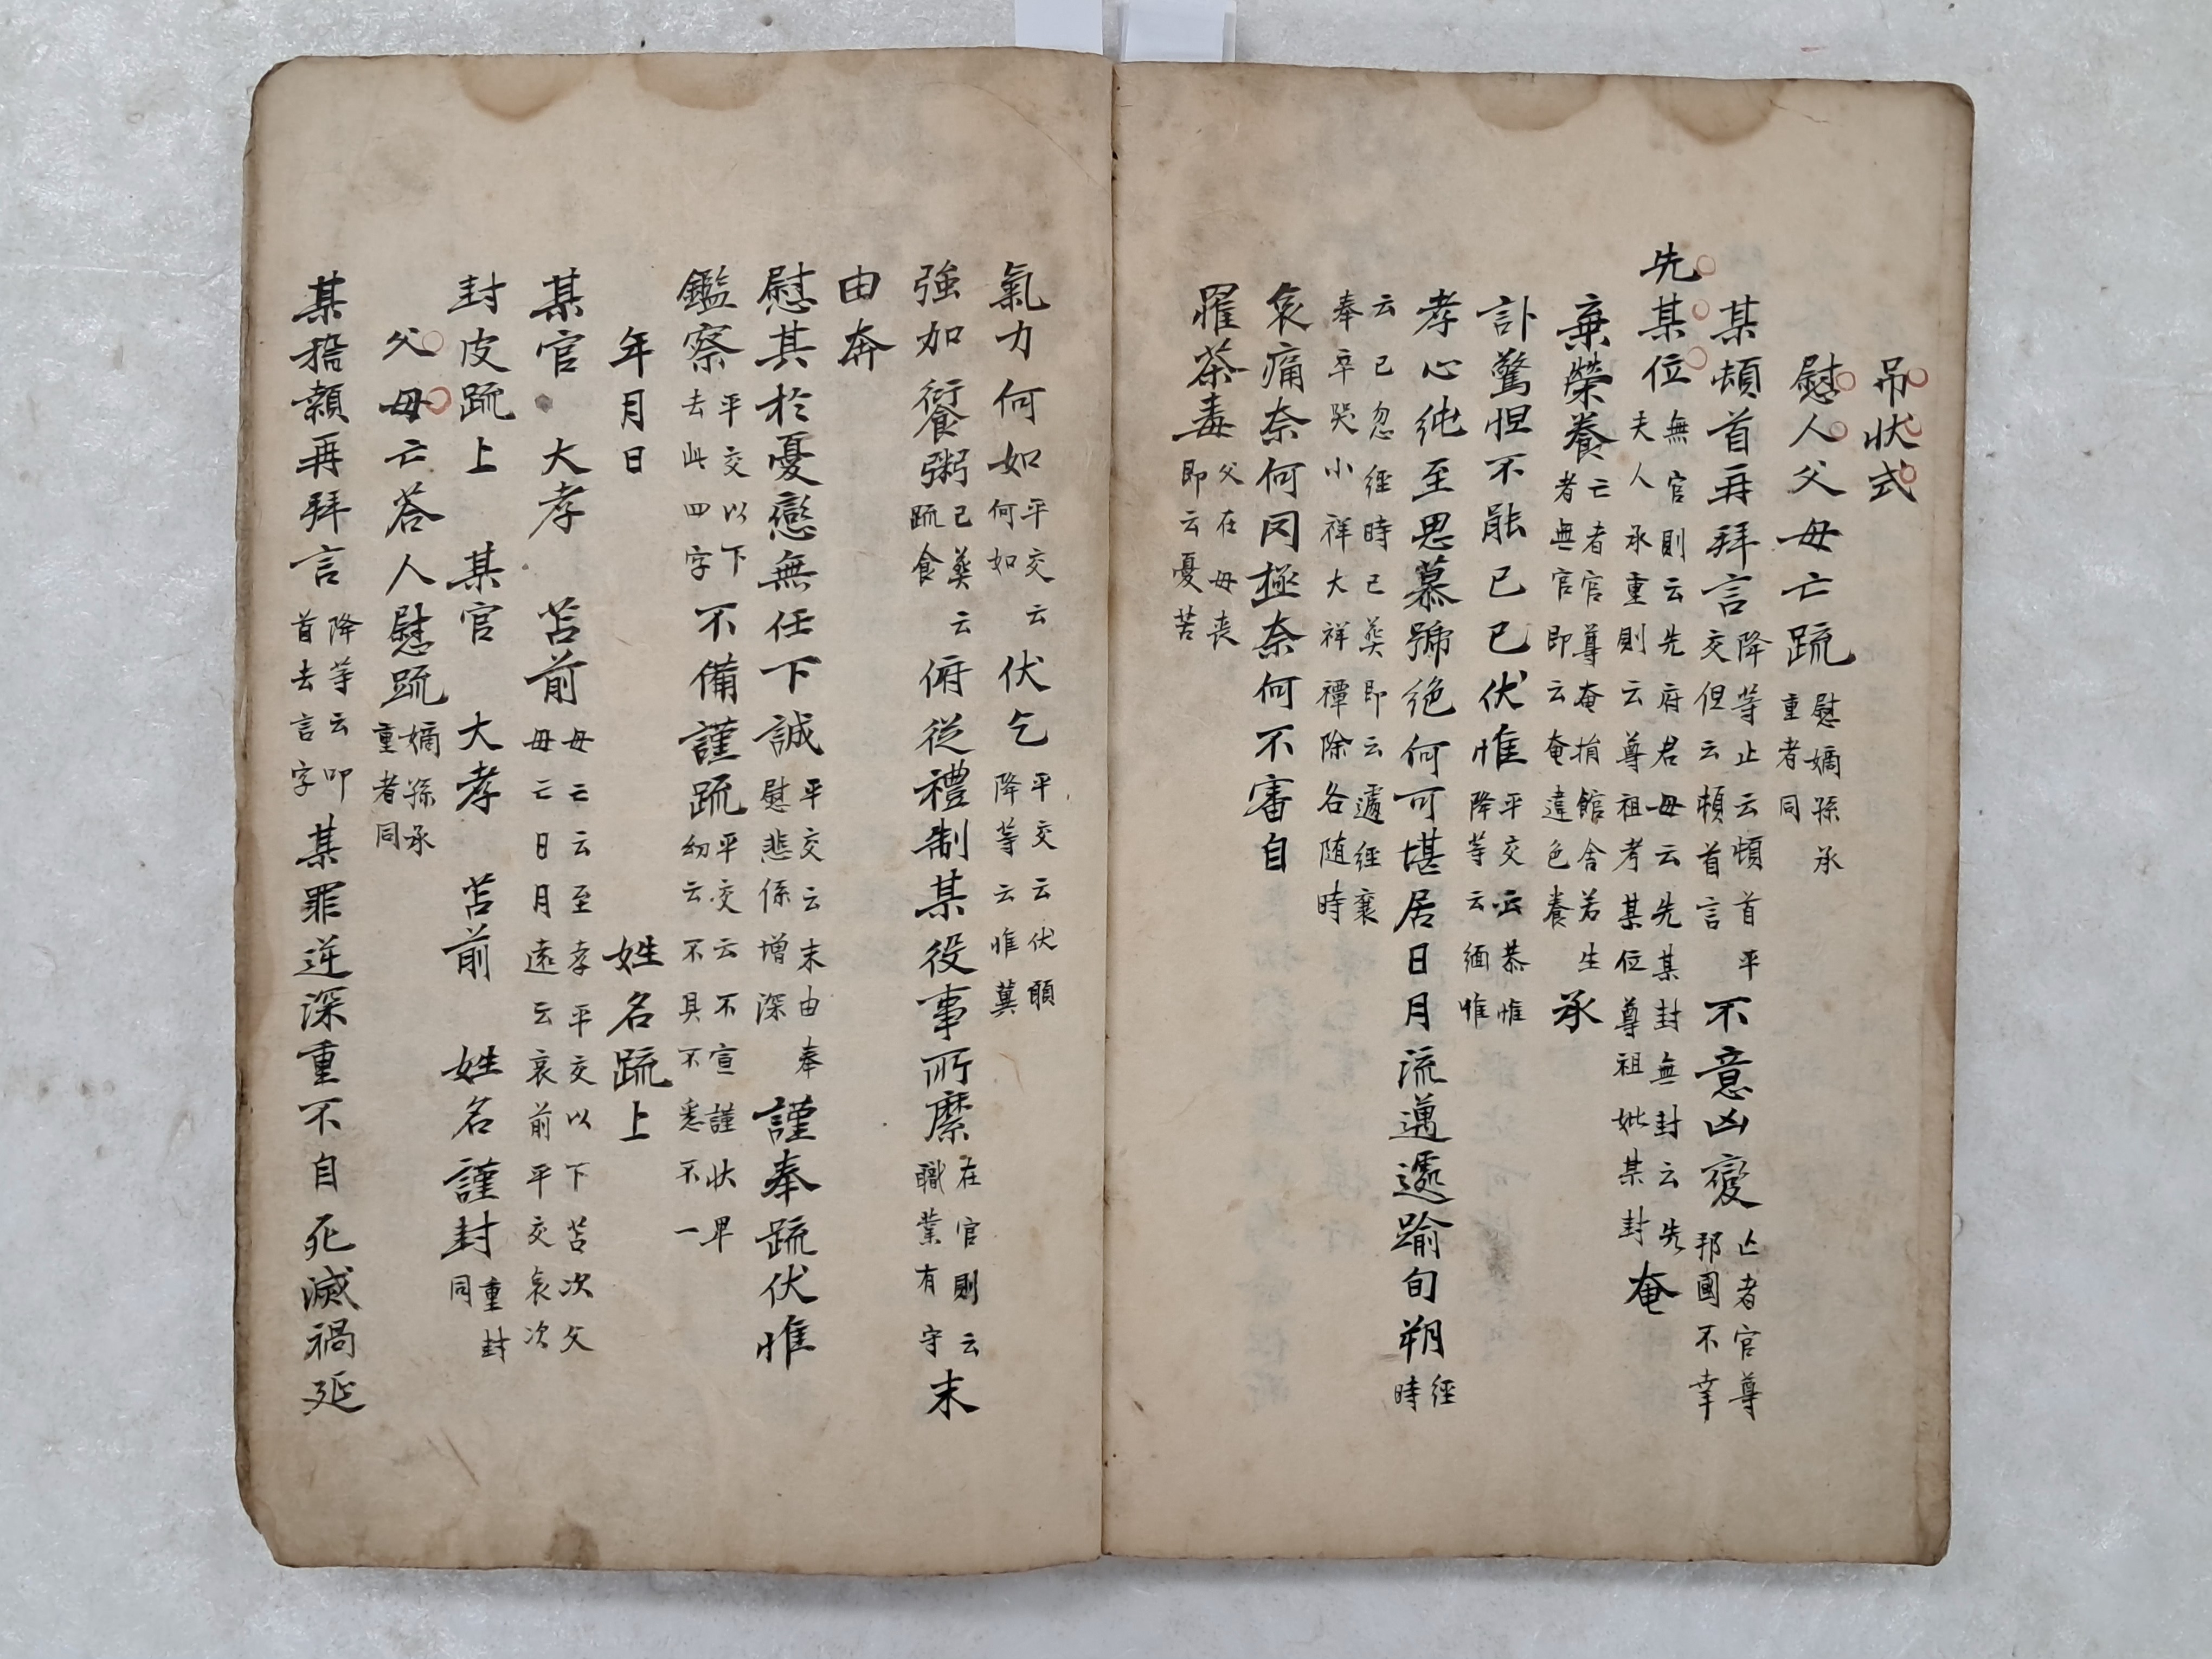 吊狀式
慰人父母亡疏 慰嫡孫承重者同
某頓首再拜言 降等止云頓首平交但云頓首言 不意凶變 亡者官尊邦國不幸
先某位 無官則云先府君母云先某封無封云先夫人承重則云尊祖考某位尊祖妣某封 奄
棄榮養 亡者官尊奄捐館舍若生者無官即云奄違色養 承
訃驚怛不能已已伏惟 平交云恭惟降等云緬惟
孝心純至思慕號絕何可堪居日月流邁遽踰旬朔 經時
云已忽經時已葬即云遽經襄奉卒哭小祥大祥禫除各随時
哀痛奈何罔極奈何不審自
罹荼毒 父在母丧即云憂苦
氣力何如 平交云何如 伏乞 平交云伏願降等云惟冀
強加餐粥 已葬云疏食 俯從禮制某役事所縻 在官則云職業有守 末
由奔
慰其於憂戀無任下誠 平交云末由奉慰悲係增深 謹奉疏伏惟
鑑察 平交以下去此四字 不備謹疏 平交云不宣謹狀卑幼云不具不悉不一
年月日 姓名疏上
某官 大孝 苫前 母亡云至孝平交以下苫次父母亡日月遠云哀前平交哀次
封皮疏上 某官 大孝 苫前 姓名謹封 重封同
父母亡答人慰疏 嫡孫承重者同
某稽顙再拜言 降等云叩首去言字 某罪逆深重不自死滅禍延